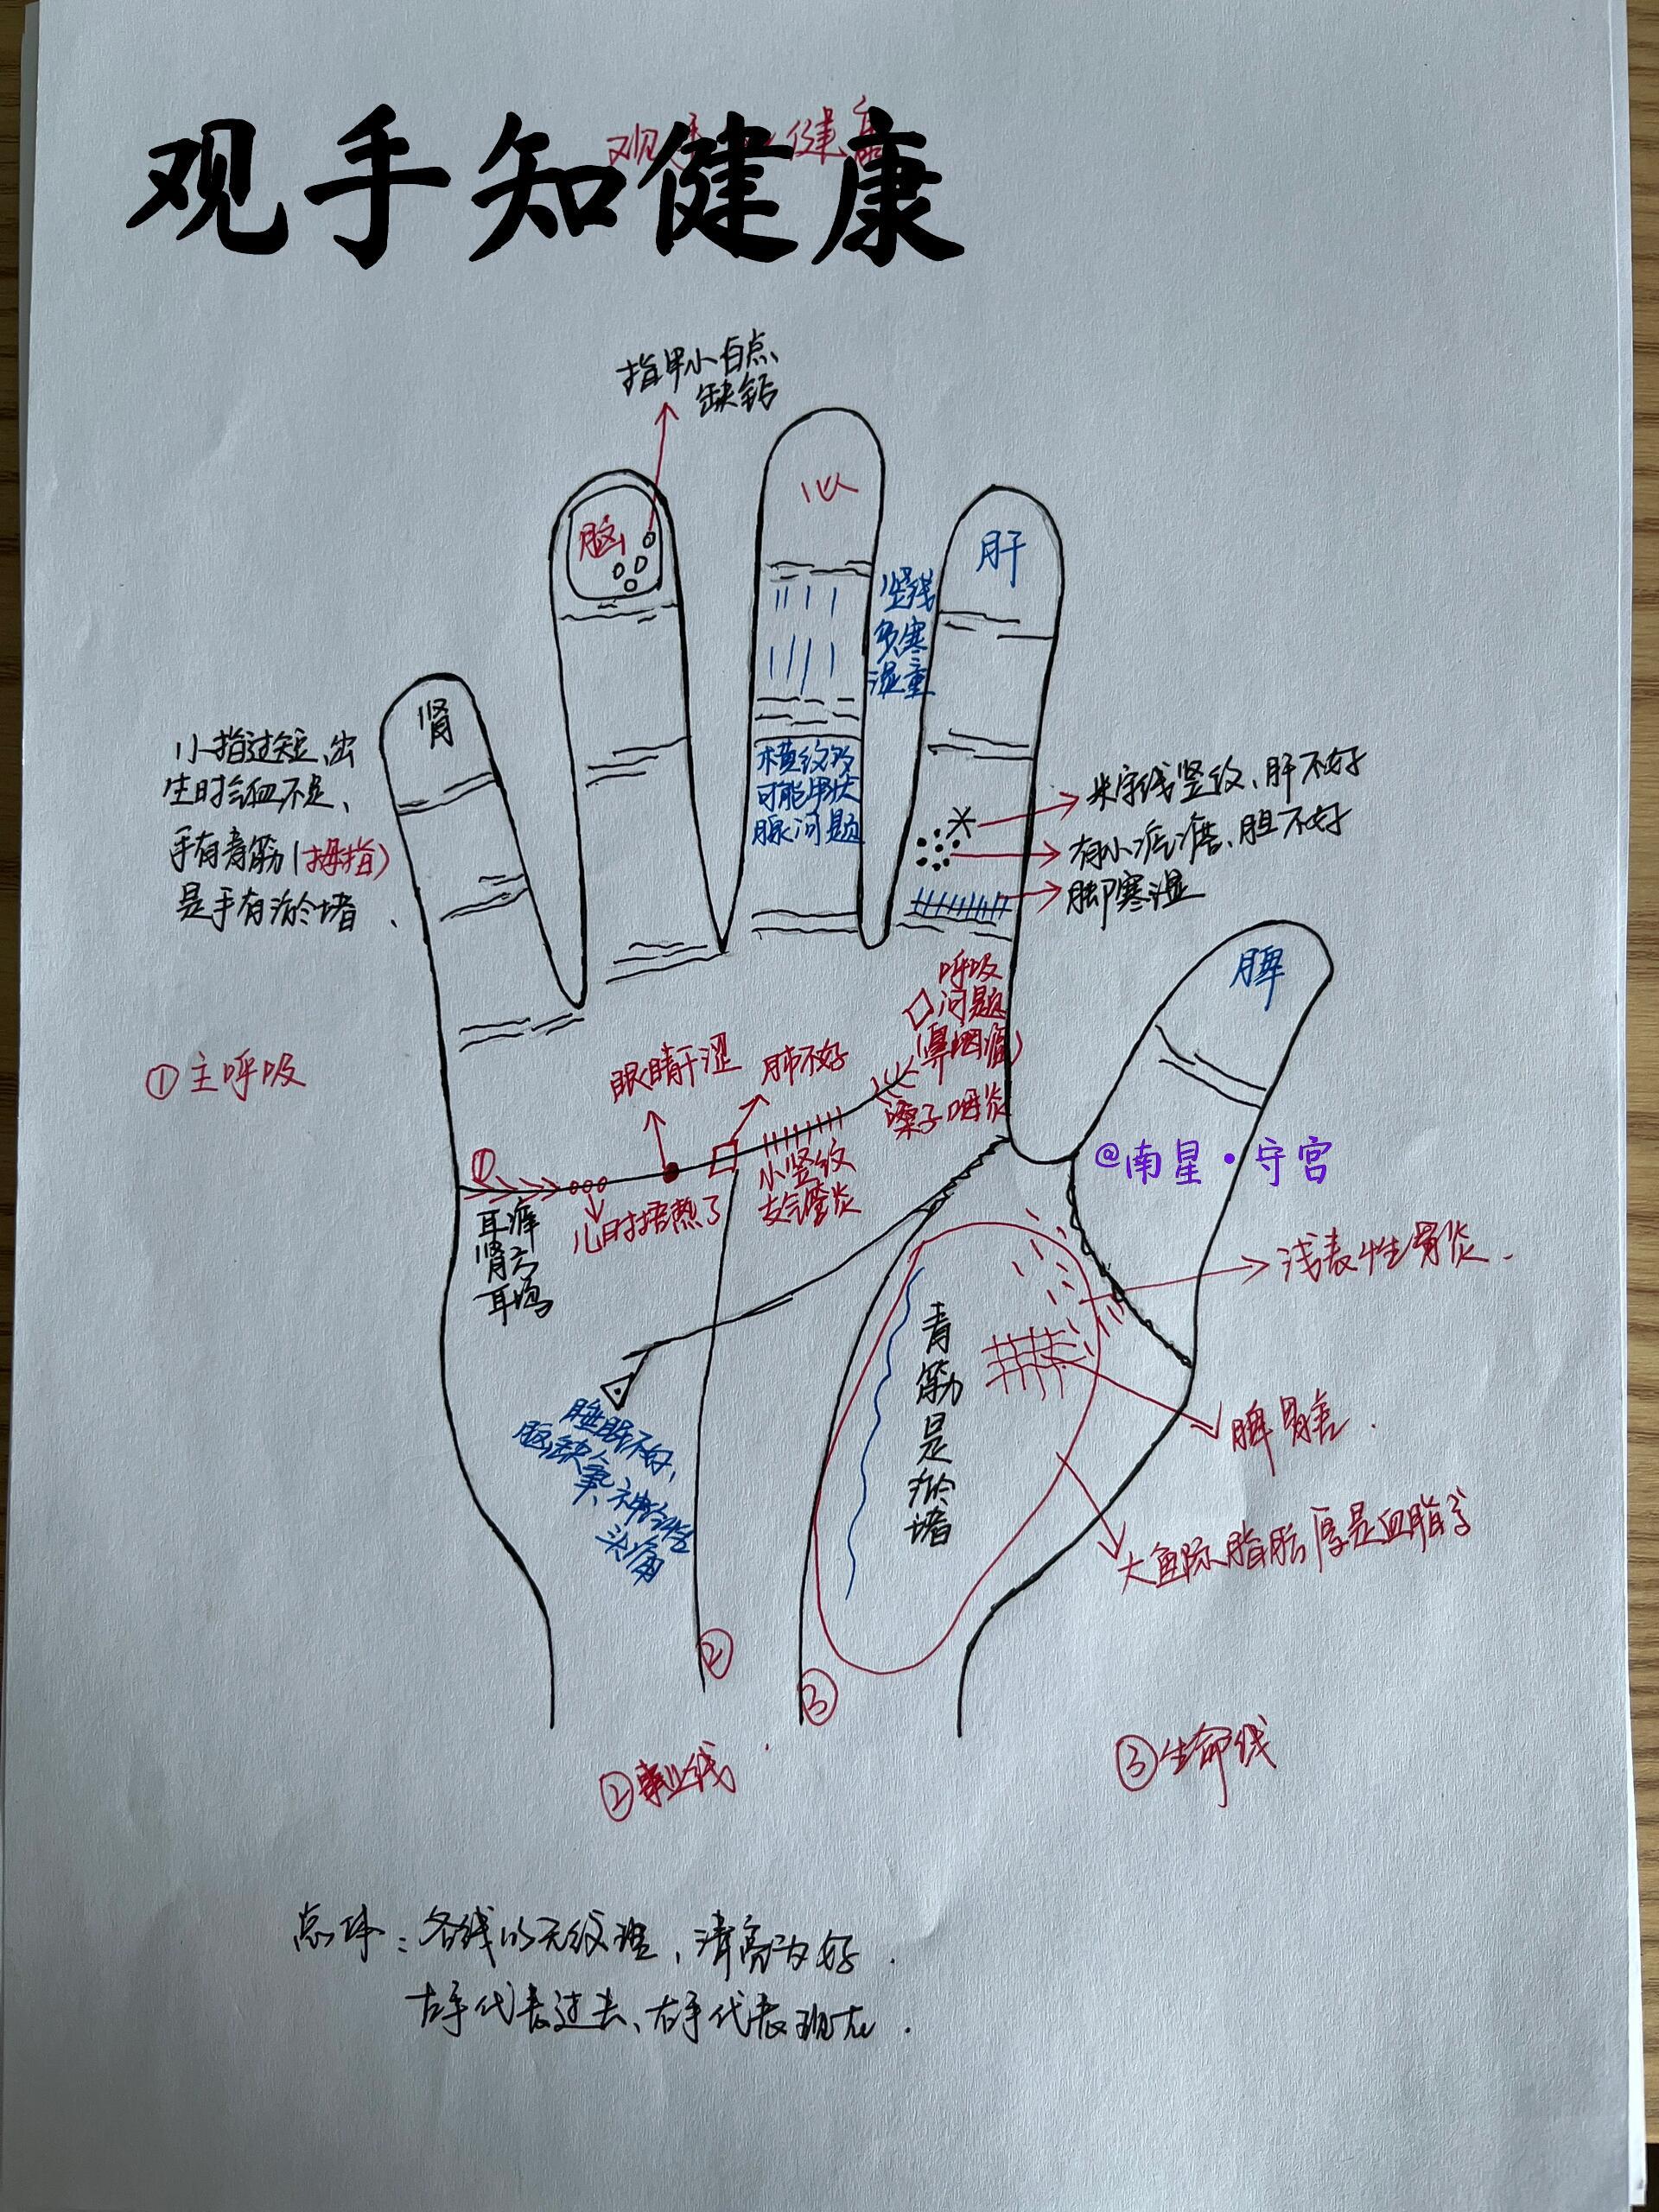 观手知健康
指甲小白点
缺钙
脑
心
肝
肾
脾
竖线
多寒
湿重
横纹多
可能甲状
腺问题
小指过短、出
生时气血不足、
手有青筋(拇指)
是手有淤堵
米字线竖纹、肝不好
有小疙瘩、胆不好
脚寒湿
①主呼吸
呼吸
问题
(鼻咽癌)
嗓子咽炎
眼睛干涩
肺不好
①
小竖纹
支气管炎
儿时捂热了
耳痒
肾亏
耳鸣
@南星·守宫
浅表性胃炎
青筋是淤堵
脾胃差
睡眠不好,
脑缺氧、神经性
头痛
大鱼际脂肪厚是血脂高
②
③
②事业线
③生命线
总体:各线以无纹理、清亮为好.
左手代表过去、右手代表现在.